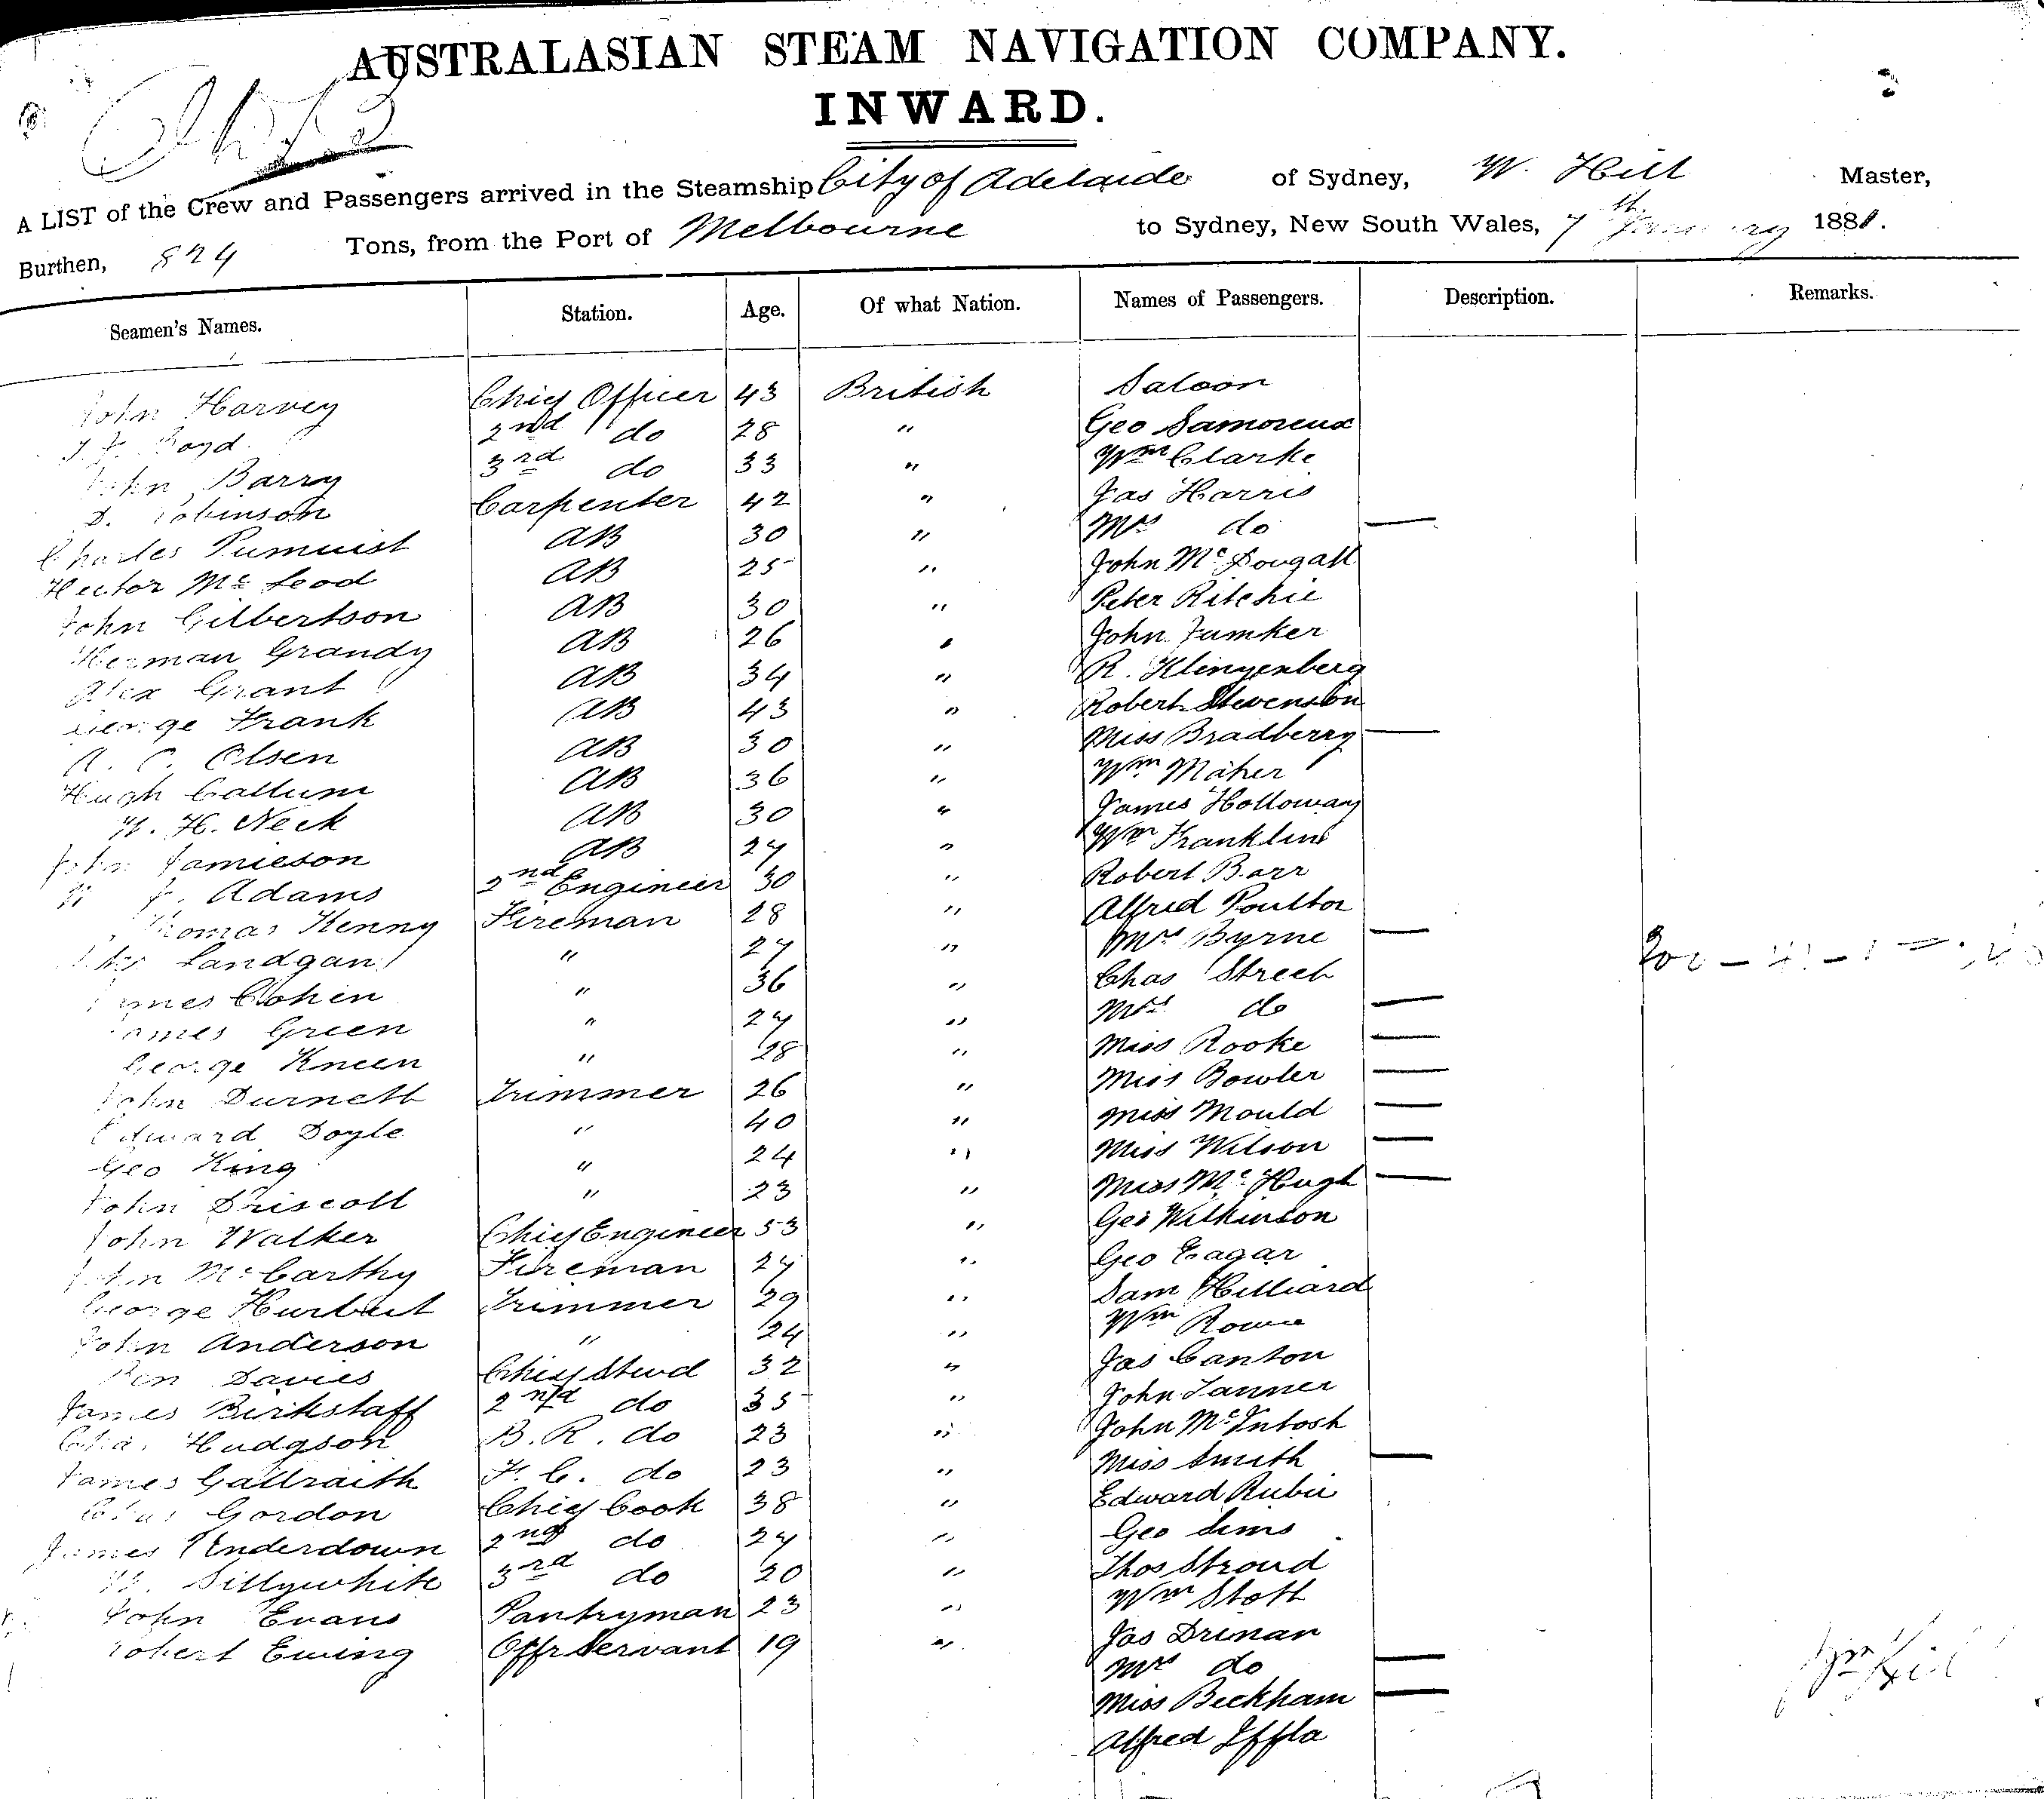 AUSTRALASIAN STEAM NAVIGATION COMPANY.
INWARD.
A LIST of the Crew and Passengers arrived in the Steamship City of Adelaide of Sydney, W. Hill Master,
Burthen, 824 Tons, from the Port of Melbourne to Sydney, New South Wales, 7th January 1881.
Seamen's Names. Station. Age. Of what Nation. Names of Passengers. Description. Remarks.
John Harvey Chief Officer 43 British Saloon
Boyd 2nd do 28 " Geo Samoreux
John Barry 3rd do 33 " Wm Clarke
D. Robinson Carpenter 42 " Jas Harris
Charles AB 30 " Mrs do —
Hector Mc Leod AB 25 " John McDougall
John Gilbertson AB 30 " Peter Ritchie
Herman Grandy AB 26 " John Jumker
Alex Grant AB 34 " R. Klingenberg
George Frank AB 43 " Robert Stevenson
A. C. Olsen AB 30 " Miss Bradberry —
Hugh Callum AB 36 " Wm Maher
H. Neck AB 30 " James Holloway
John Jamieson AB 27 " Wm Franklin
J. Adams 2nd Engineer 30 " Robert Barr
Thomas Kenny Fireman 28 " Alfred Poulton
Landgan " 27 " Mrs Byrne —
James Cohen " 36 " Chas Streeb
James Green " 27 " Mrs do —
George Kneen " 28 " Miss Rooke —
John Durnett Trimmer 26 " Miss Bowler —
Edward Doyle " 40 " Miss Mould —
Geo King " 24 " Miss Wilson —
John Driscoll " 23 " Miss McHugh —
John Walker Chief Engineer 53 " Geo Wilkinson
John McCarthy Fireman 27 " Geo Eagar
George Hurbert Trimmer 29 " Sam Hilliard
John Anderson " 24 " Wm Rowe
Ben Davies Chief Stwd 32 " Jas Canton
James Birkstaff 2nd do 35 " John Tanner
Chas Hudgson B. R. do 23 " John McIntosh
James Gallraith F. C. do 23 " Miss Smith —
Gordon Chief Cook 38 " Edward Rubie
James Underdown 2nd do 27 " Geo Sims
Sillywhite 3rd do 20 " Thos Stroud
John Evans Pantryman 23 " Wm Stott
Robert Ewing Offr Servant 19 " Jas Drinan
Mrs do —
Miss Beckham —
Alfred Iffla
Wm Hill